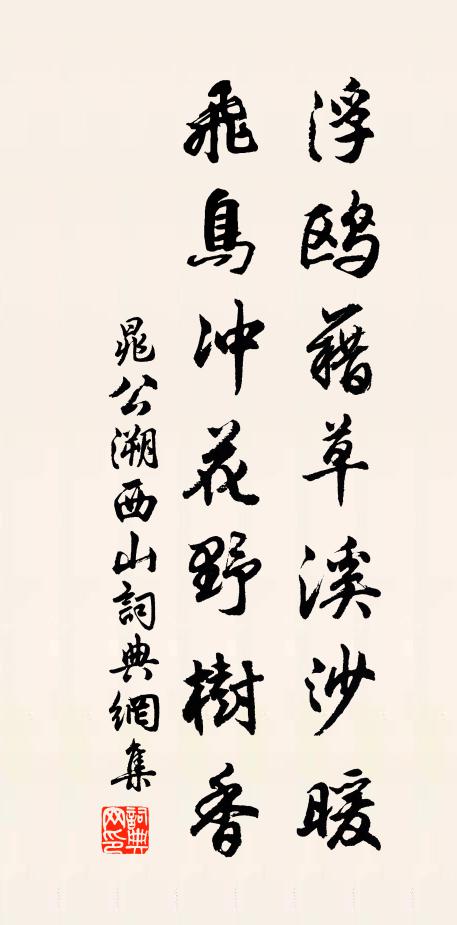 浮鸥藉草溪沙暖
飛鳥冲花野樹香
晁公溯西山詞典網集
詞典網印